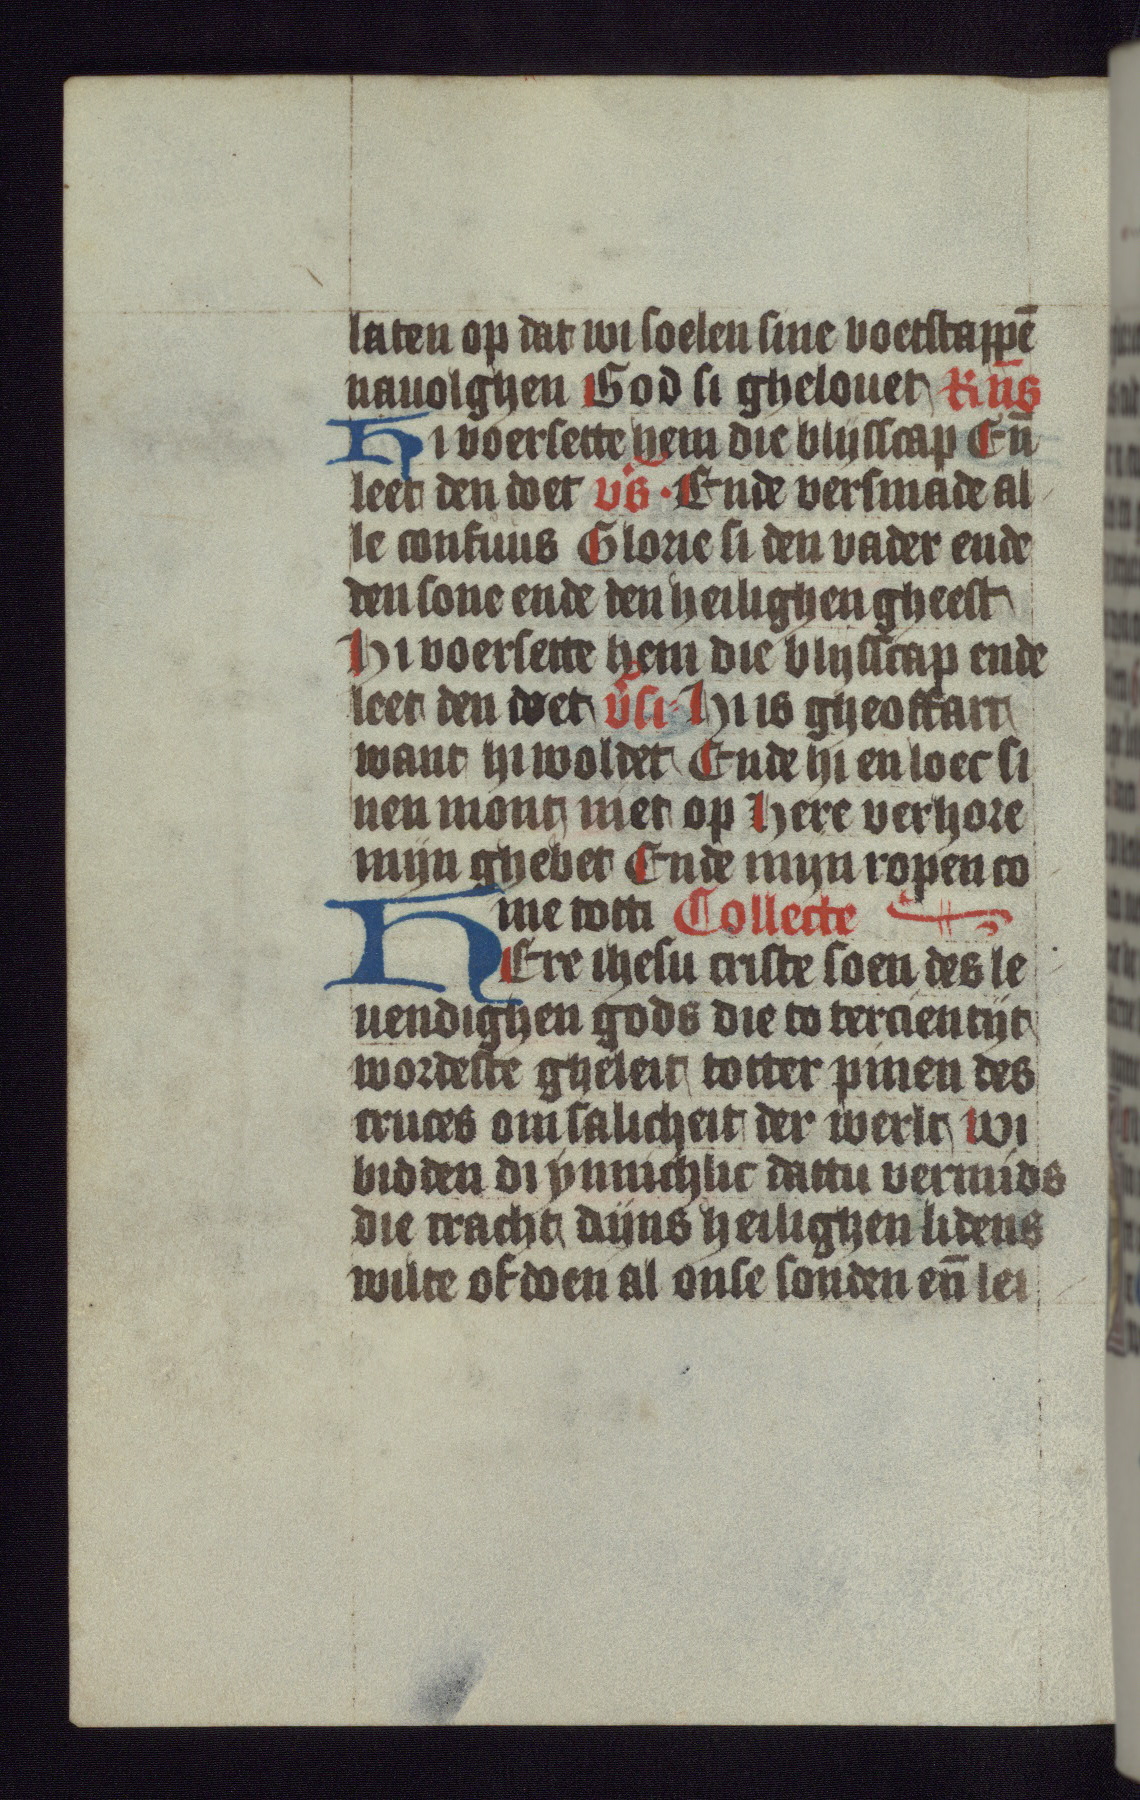 laten op dat wi soelen sine voetstappē
nauolghen God si ghelouet Rn̄s
Hi voersette hem die blijsscap Eñ
leet den doet vs̄ · Ende versmade al
le confuus Glorie si den vader ende
den sone ende den heilighen gheest
Hi voersette hem die blijsscap ende
leet den doet v̄si Hi is gheoffart
want hi woldet Ende hi en loec si
nen mont niet op Here verhore
mijn ghebet Ende mijn ropen co
me totti Collecte
HEre ihesu criste soen des le
uendighen gods die to tercien tijt
wordeste gheleit totter pinen des
cruces om salicheit der werlt wi
bidden di ynnichlic dattu vermids
die cracht dijns heilighen lidens
wilte of doen al onse sonden eñ lei